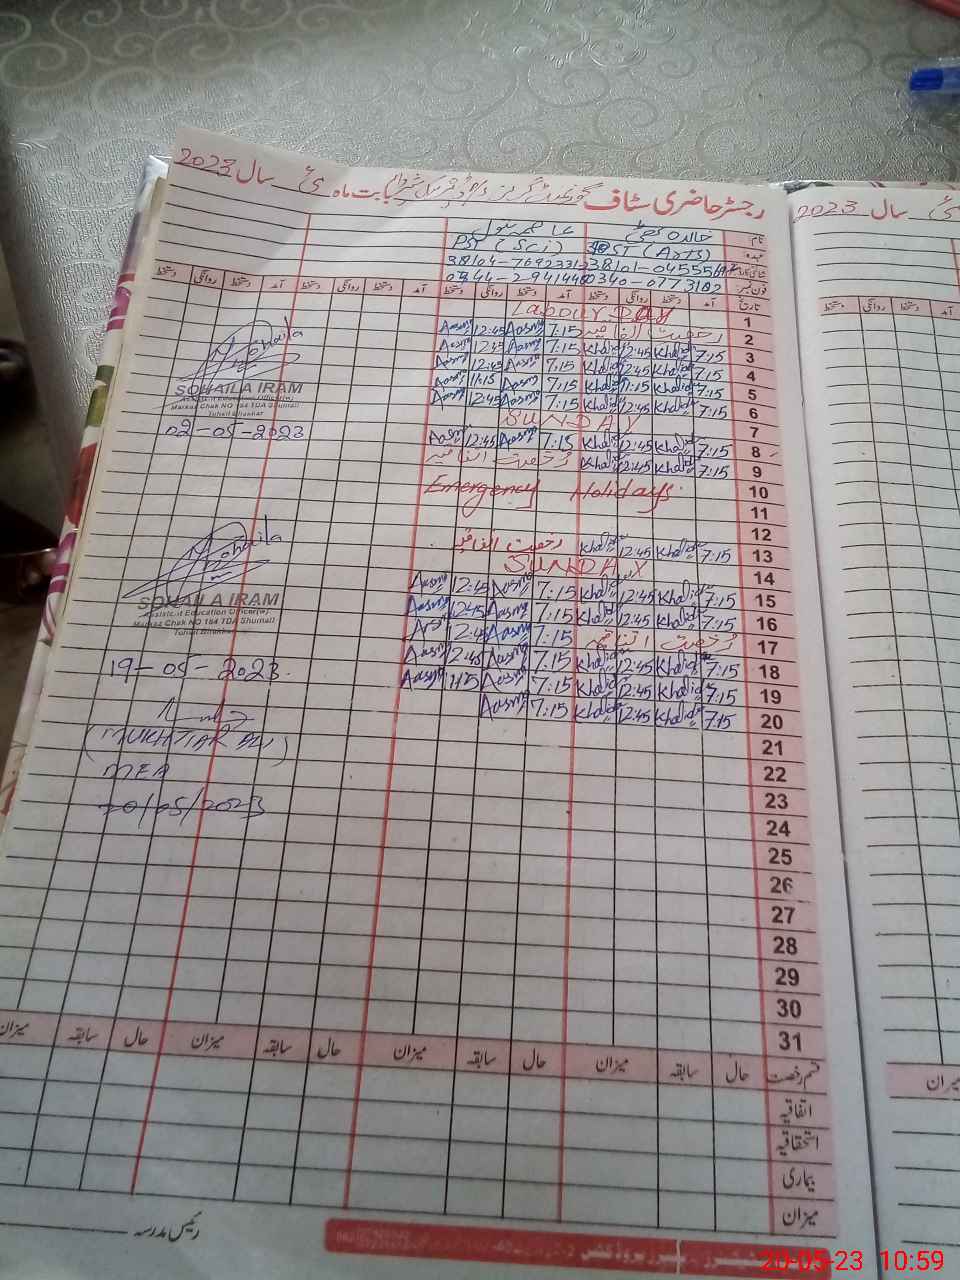 رجسٹر حاضری سٹاف گورنمنٹ گرلز بابت ماہ مئی سال 2023
مئی سال 2023
نام
عہدہ PST (Arts) PST (Sci)
فون نمبر 0340-0773182
تاریخ آمد دستخط روانگی دستخط آمد دستخط روانگی دستخط آمد دستخط روانگی دستخط آمد دستخط روانگی دستخط
1 Labour DAY
2 رخصت اتفاقیہ 7:15 Aasma 12:45 Aasma
3 7:15 Khalida 12:45 Khalida 7:15 Aasma 12:45 Aasma
4 7:15 Khalida 12:45 Khalida 7:15 Aasma 12:45 Aasma
5 7:15 Khalida 11:15 Khalida 7:15 Aasma 11:15 Aasma
6 7:15 Khalida 12:45 Khalida 7:15 Aasma 12:45 Aasma
7 SUNDAY
8 7:15 Khalida 12:45 Khalida 7:15 Aasma 12:45 Aasma
9 7:15 Khalida 12:45 Khalida رخصت اتفاقیہ
10 Emergency Holidays
11
12
13 7:15 Khalida 12:45 Khalida رخصت اتفاقیہ
14 SUNDAY
15 7:15 Khalida 12:45 Khalida 7:15 Aasma 12:45 Aasma
16 7:15 Khalida 12:45 Khalida 7:15 Aasma 12:45 Aasma
17 رخصت اتفاقیہ 7:15 Aasma 12:45 Aasma
18 7:15 Khalida 12:45 Khalida 7:15 Aasma 12:45 Aasma
19 7:15 Khalida 12:45 Khalida 7:15 Aasma 11:15 Aasma
20 7:15 Khalida 12:45 Khalida 7:15 Aasma
21
22
23
24
25
26
27
28
29
30
31
Sohaila
SOHAILA IRAM
Assistent Education Officer(w)
Markaz Chak NO 164 TDA Shumali
Tehsil Bhakkar
02-05-2023
Sohaila
SOHAILA IRAM
Assistent Education Officer(w)
Markaz Chak NO 164 TDA Shumali
Tehsil Bhakkar
19-05-2023
(MUKHTIAR ALI)
MEA
20/05/2023
قسم رخصت حال سابقہ میزان حال سابقہ میزان حال سابقہ میزان حال سابقہ میزان
اتفاقیہ
استحقاقیہ
بیماری
میزان
رئیس مدرسہ
20-05-23 10:59